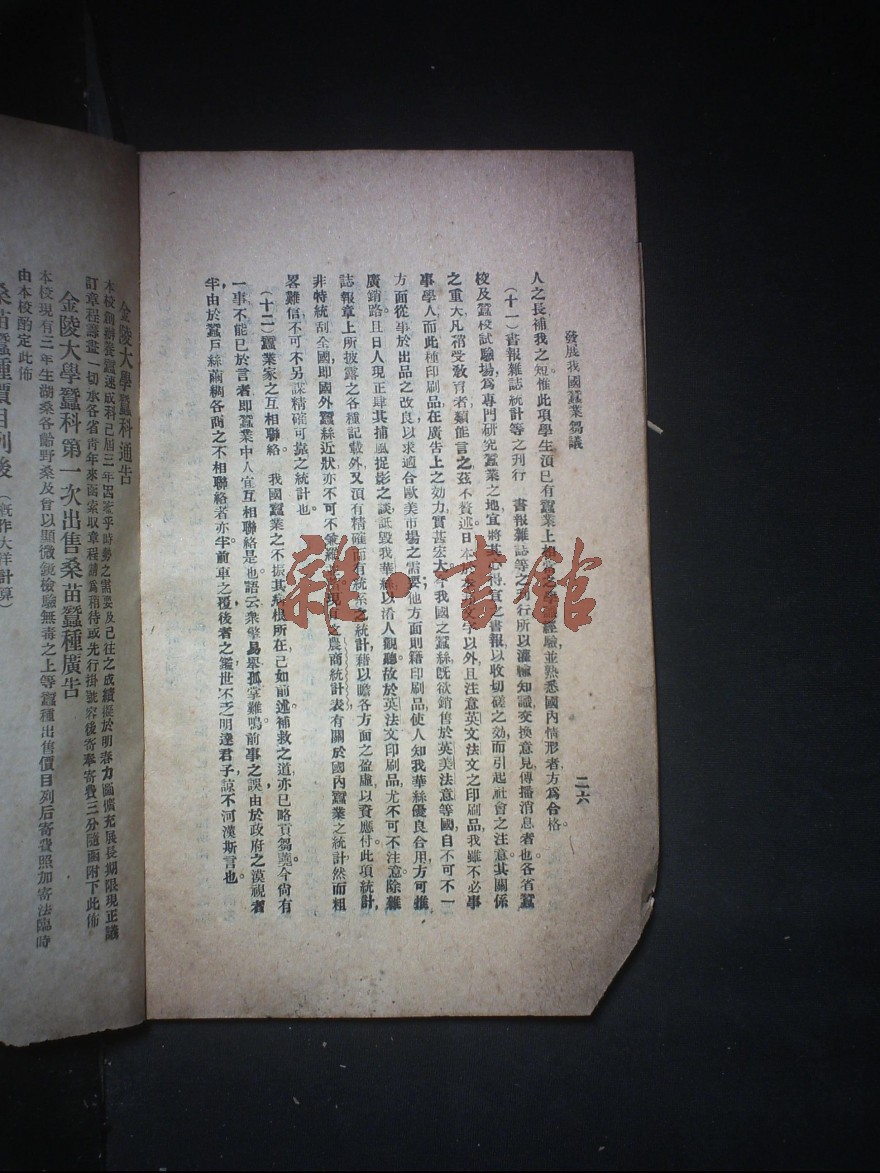 發展我國蠶業芻議
二六
人之長補我之短惟此項學生須已有蠶業上相當之學識經驗並熟悉國內情形者方為合格。
(十一)書報雜誌統計等之刊行　書報雜誌等之刊行所以灌輸知識交換意見傳播消息者也各省蠶
校及蠶桑試驗場為專門研究蠶業之地宜將其心得宣之書報以收切磋之効而引起社會之注意其關係
之重大凡稍受敎育者類能言之茲不贅述日本於本國文字以外且注意英文法文之印刷品我雖不必事
事學人而此種印刷品在廣告上之効力實甚宏大今我國之蠶絲旣欲銷售於英美法意等國自不可不一
方面從事於出品之改良以求適合歐美市場之需要他方面則籍印刷品使人知我華絲優良合用方可推
廣銷路且日人現正肆其捕風捉影之談詆毀我華絲以淆人觀聽故於英法文印刷品尤不可不注意除雜
誌報章上所披露之各種記載外又須有精確而有統系之統計藉以瞻各方面之盈虛以資應付此項統計
非特統刮全國即國外蠶絲近狀亦不可不兼羅 現有之農商統計表有關於國內蠶業之統計然而粗
畧難信不可不另謀精確可靠之統計也。
(十二)蠶業家之互相聯絡　我國蠶業之不振其病根所在已如前述補救之道亦已略貢芻蕘今尙有
一事不能已於言者即蠶業中人宜互相聯絡是也語云衆擎易舉孤掌難鳴前事之誤由於政府之漠視者
半由於蠶戶絲繭綢各商之不相聯絡者亦半前車之覆後者之鑑世不乏明達君子諒不河漢斯言也
金陵大學蠶科通告
本校創辦養蠶速成科已屆三年因 乎時勢之需要及已往之成績擬於明春力圖擴充展長期限現正議
訂章程籌畫一切承各省靑年來函索取章程請為稍待或先行掛號容後寄奉寄費三分隨函附下此佈
金陵大學蠶科第一次出售桑苗蠶種廣告
本校現有二年生湖桑各餄野桑及曾以顯微鏡檢驗無毒之上等蠶種出售價目列后寄費照加寄法臨時
由本校酌定此佈
桑苗蠶種價目列後(祗作大洋計算)
雜·書館